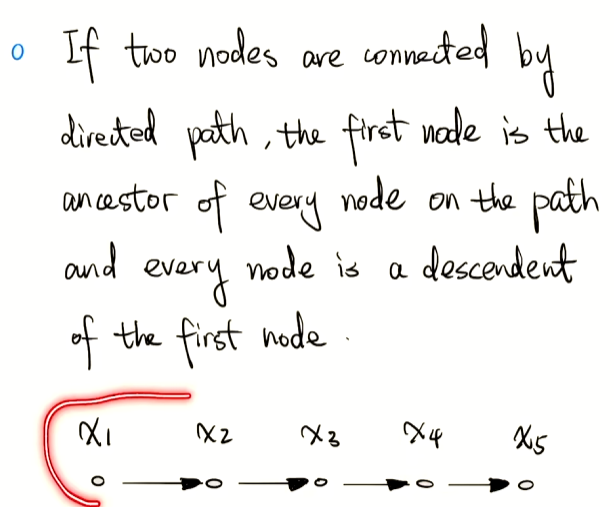 If two nodes are connected by
directed path, the first node is the
ancestor of every node on the path
and every node is a descendent
of the first node.
x1 x2 x3 x4 x5